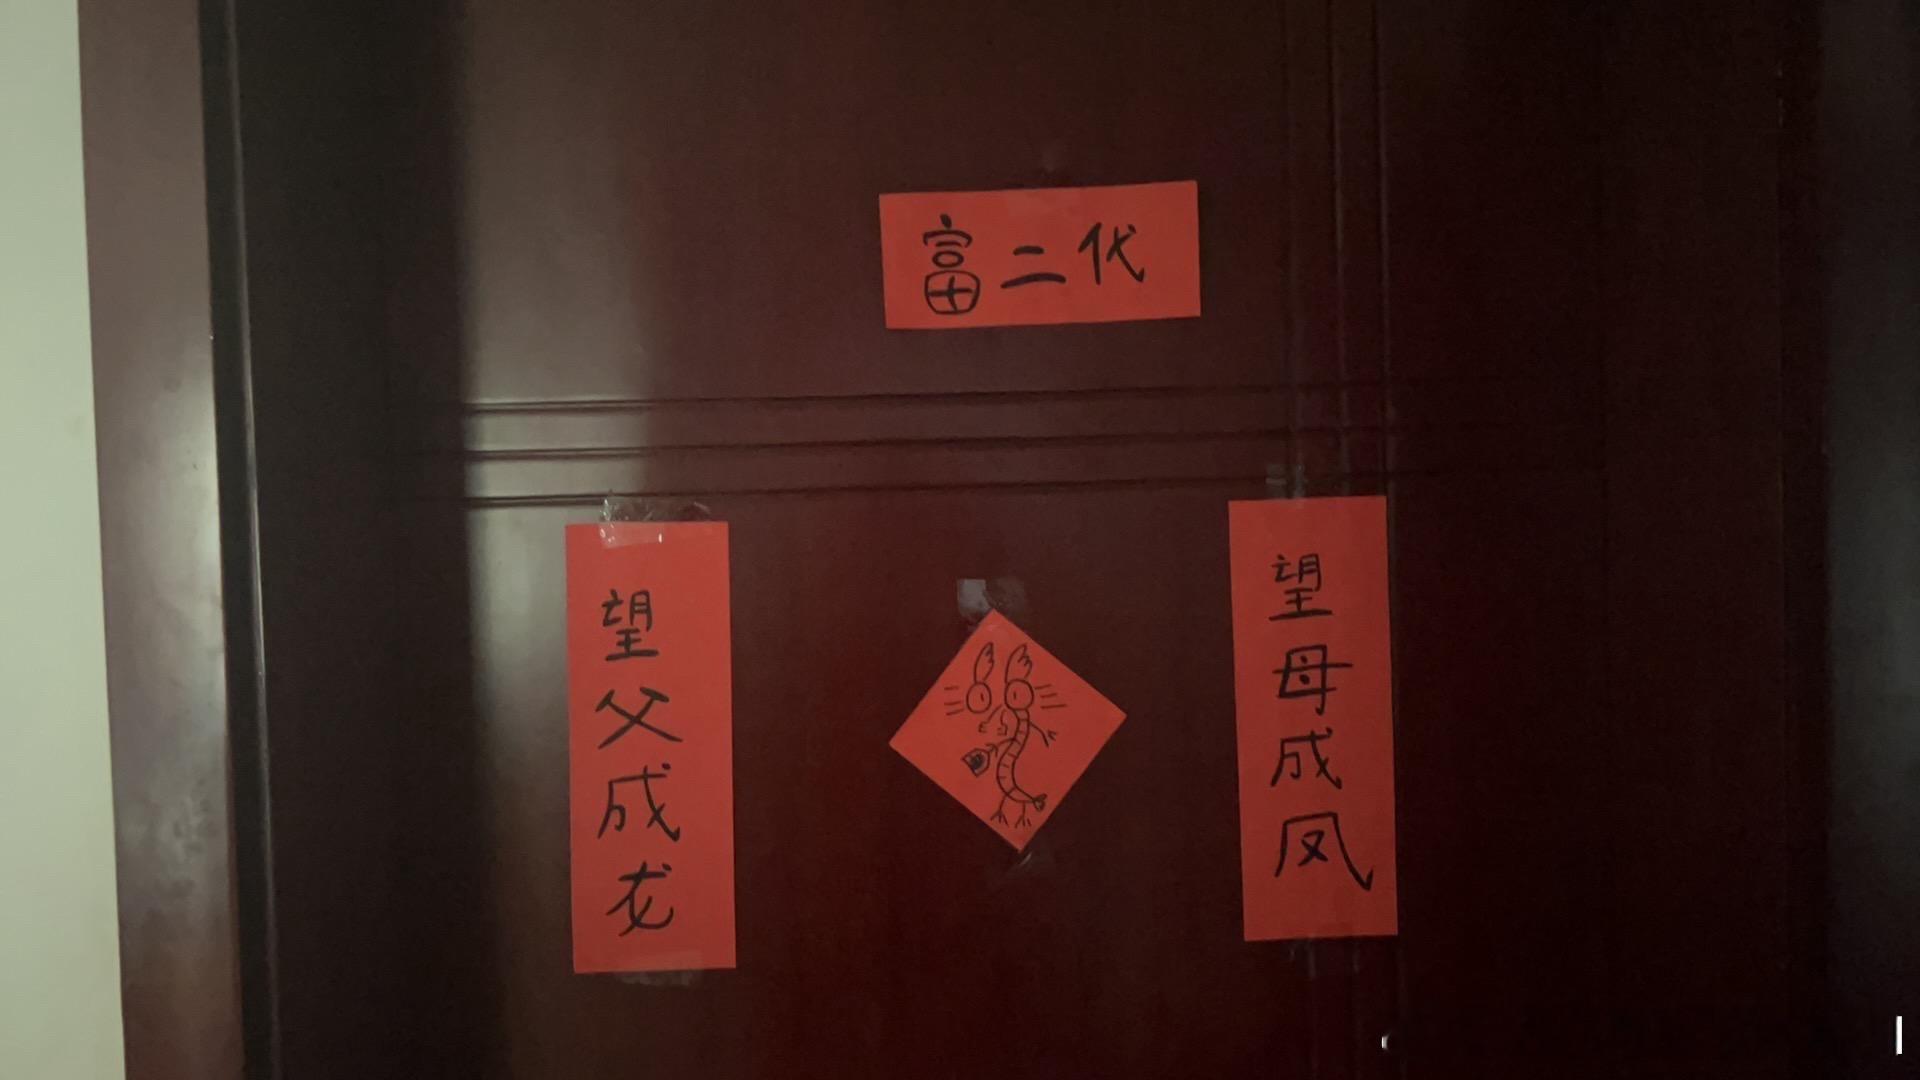 富二代
望父成龙
望母成凤